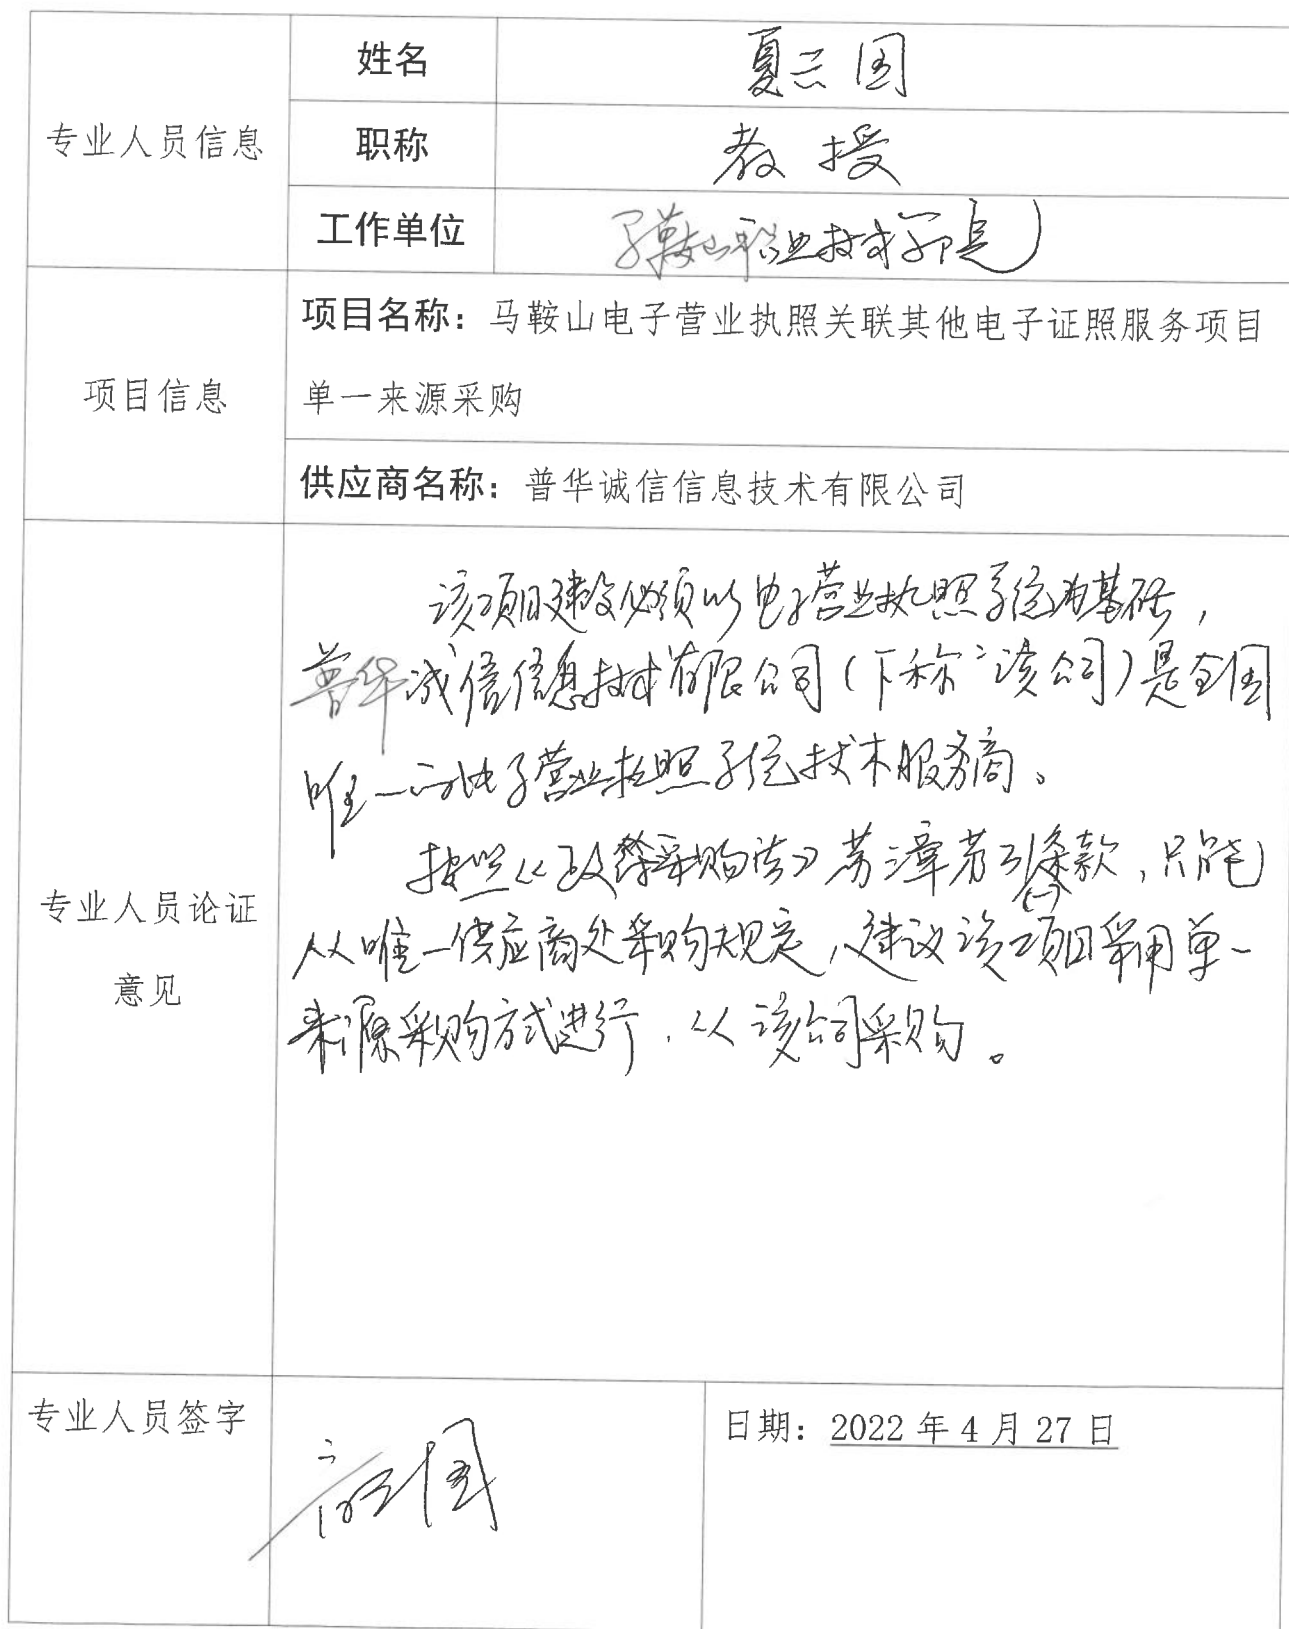 姓名 夏云国
专业人员信息 职称 教授
工作单位 马鞍山职业技术学院
项目名称：马鞍山电子营业执照关联其他电子证照服务项目
项目信息 单一来源采购
供应商名称：普华诚信信息技术有限公司
该项目建设必须以电子营业执照系统为基础，
普华诚信信息技术有限公司（下称：该公司）是全国
唯一的电子营业执照系统技术服务商。
按照《政府采购法》第三章第31条款，只能
专业人员论证 从唯一供应商处采购规定，建议该项目采用单一
意见 来源采购方式进行，从该公司采购。
专业人员签字 夏云国 日期：2022年4月27日